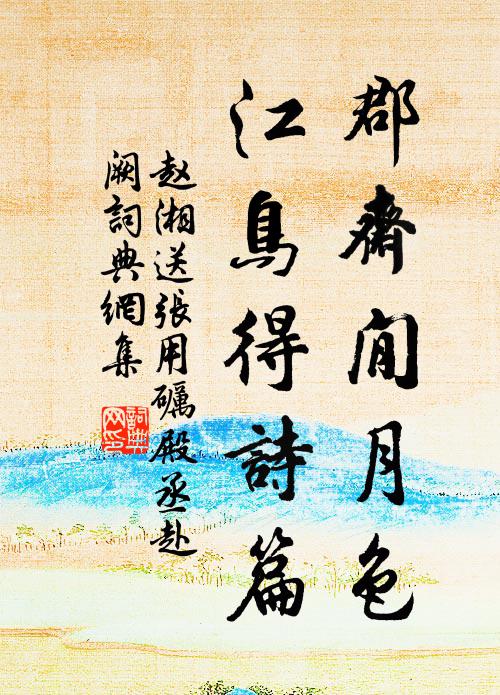 郡齋閒月色
江鳥得詩篇
赵湘送張用礪殿丞赴
阙詞典網集
詞典网印